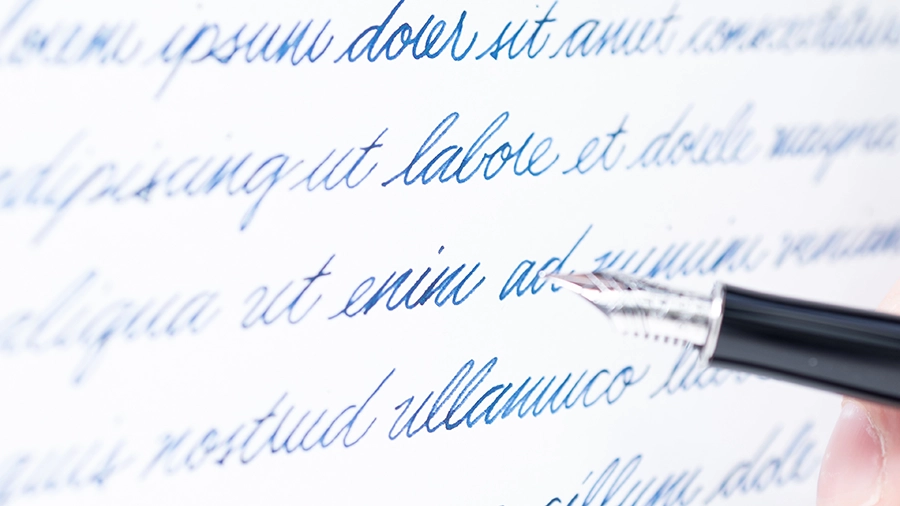 Lorem ipsum dolor sit amet consectetur
adipiscing ut labore et dolore magna
aliqua ut enim ad veniam
quis nostrud ullamco
cillum